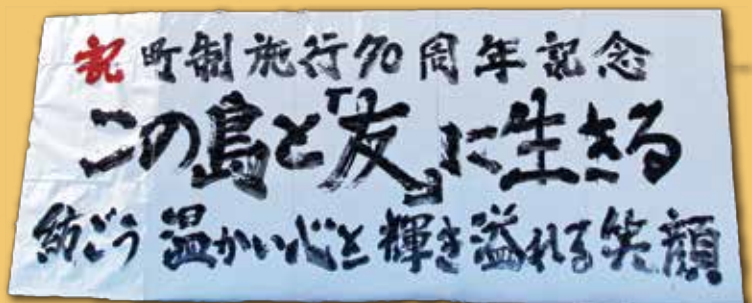 祝 町制施行70周年記念
この島と「友」に生きる
紡ごう 温かい心と 輝き溢れる笑顔